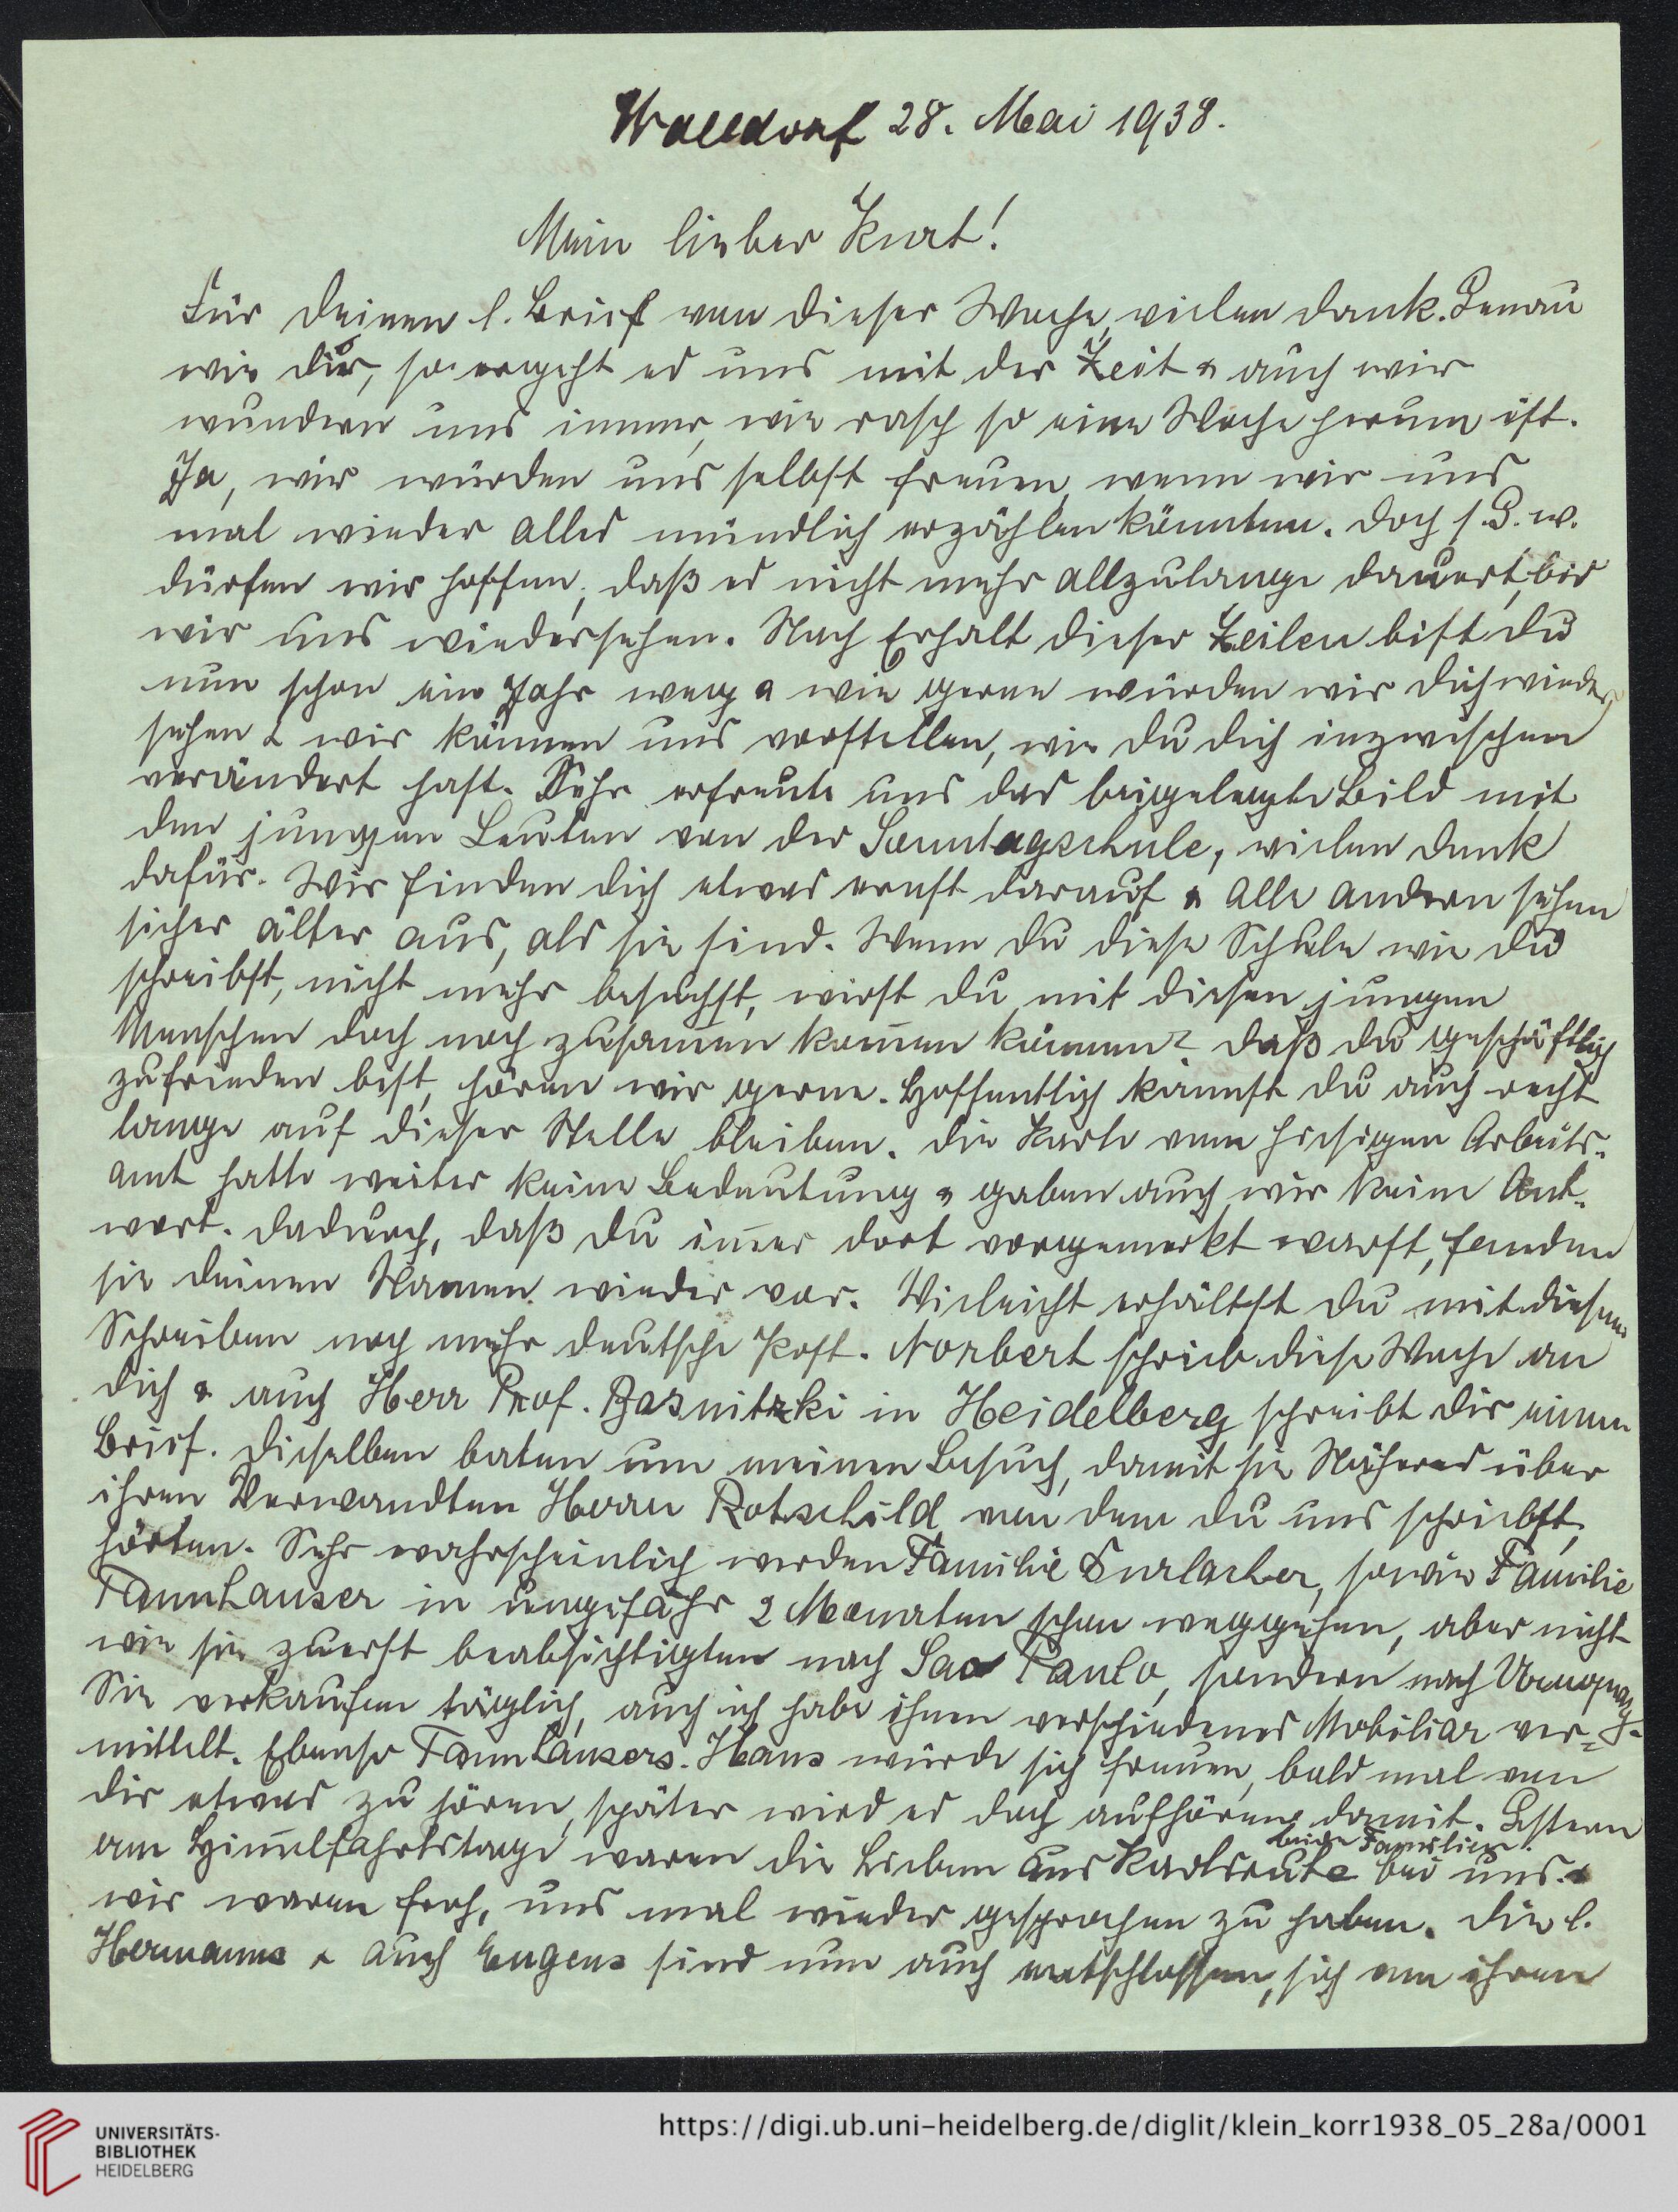 Walldorf 28. Mai 1938.
Mein lieber Kurt!
Für deinen l. Brief von dieser Woche, vielen Dank. Genau
wie dir, so ergeht es uns mit der Zeit & auch wir
wundern uns immer, wie rasch so eine Woche herum ist.
Ja, wir würden uns selbst freuen, wenn wir uns
mal wieder alles mündlich erzählen könnten. Doch s. G. w.
dürfen wir hoffen, daß es nicht mehr allzulange dauert, bis
wir uns wiedersehen. Nach Erhalt dieser Zeilen bist du
nun schon ein Jahr weg & wie gerne würden wir dich wieder
sehen & wir können uns vorstellen, wie du dich inzwischen
verändert hast. Sehr erfreute uns das beigelegte Bild mit
den jungen Leuten von der Sonntagschule, vielen Dank
dafür. Wir finden dich etwas ernst darauf & alle andern sehen
sicher älter aus, als sie sind. Wenn du diese Schule wie du
schreibst, nicht mehr besuchst, wirst du mit diesen jungen
Menschen doch noch zusam̄en kom̄en können? Daß du geschäftlich
zufrieden bist, hören wir gerne. Hoffentlich kannst du auch recht
lange auf dieser Stelle bleiben. Die Karte vom hiesigen Arbeits-
amt hatte weiter keine Bedeutung & gaben auch wir keine Ant-
wort. Dadurch, daß du im̄er dort vorgemerkt warst, fanden
sie deinen Namen wieder vor. Vieleicht erhältst du mit diesem
Schreiben noch mehr deutsche Post. Norbert schrieb diese Woche an
dich & auch Herr Prof. Basnitzki in Heidelberg schreibt dir einen
Brief. Dieselben baten um meinen Besuch, damit sie Näheres über
ihren Verwandten Herrn Rotschild von dem du uns schriebst,
hörten. Sehr wahrscheinlich werden Familie Durlacher, sowie Familie
Tannhauser in ungefähr 2 Monaten schon weggehen, aber nicht
wie sie zuerst beabsichtigten nach Sao Paulo, sondern nach Uruguay.
Sie verkaufen täglich, auch ich habe ihnen verschiedenes Mobiliar ver-
mittelt. Ebenso Tannhausers. Hans würde sich freuen, bald mal von
dir etwas zu hören, später wird es doch aufhören damit. Gestern
am Him̄elfahrtstage waren die Lieben aus Karlsruhe beide Familien bei uns &
wir waren froh, uns mal wieder gesprochen zu haben. Die l.
Hermanns & auch Eugens sind nun auch entschlossen, sich um ihren
UNIVERSITÄTS-
BIBLIOTHEK
HEIDELBERG
https://digi.ub.uni-heidelberg.de/diglit/klein_korr1938_05_28a/0001